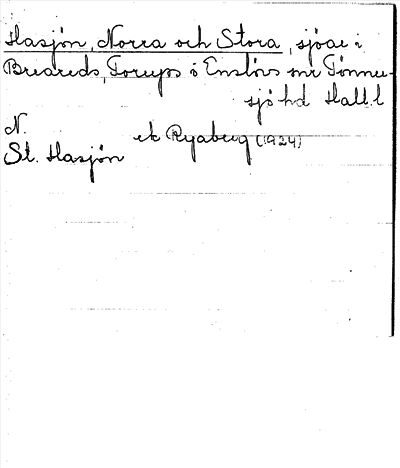 Hasjön, Norra och Stora, sjöar i
Breareds, Torups o Enslövs snr Tönner-
sjö hd Hall.l
N.
St. Hasjön ek Ryaberg (1924)